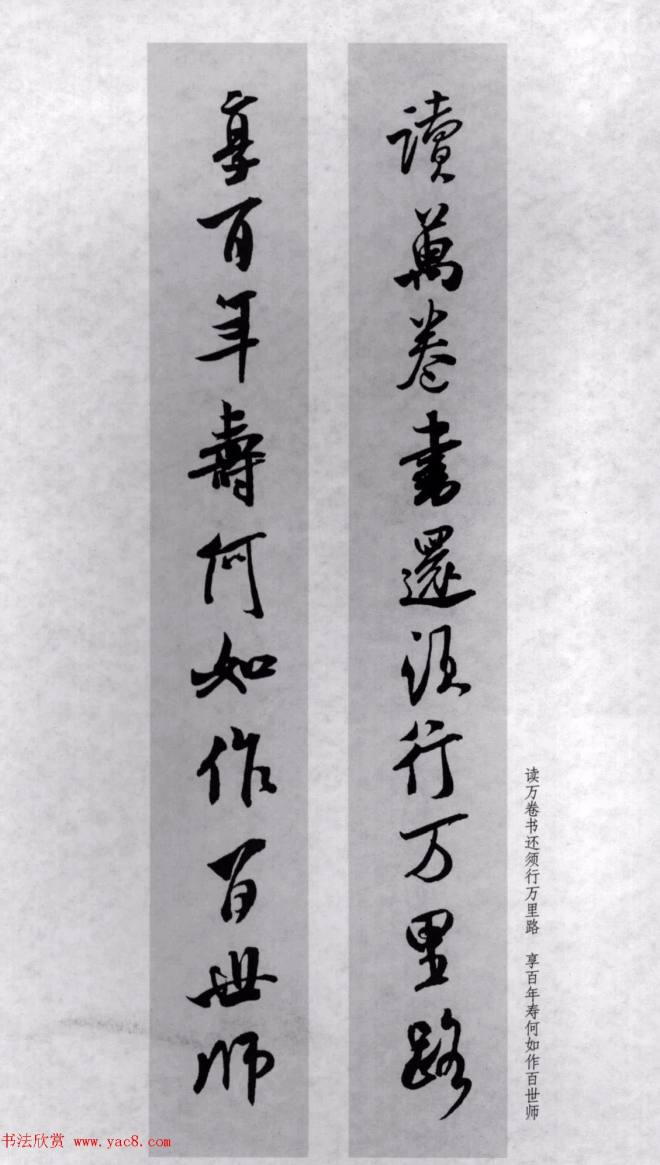 讀萬卷書還須行万里路
享百年壽何如作百世師
读万卷书还须行万里路　享百年寿何如作百世师
书法欣赏 www.yac8.com